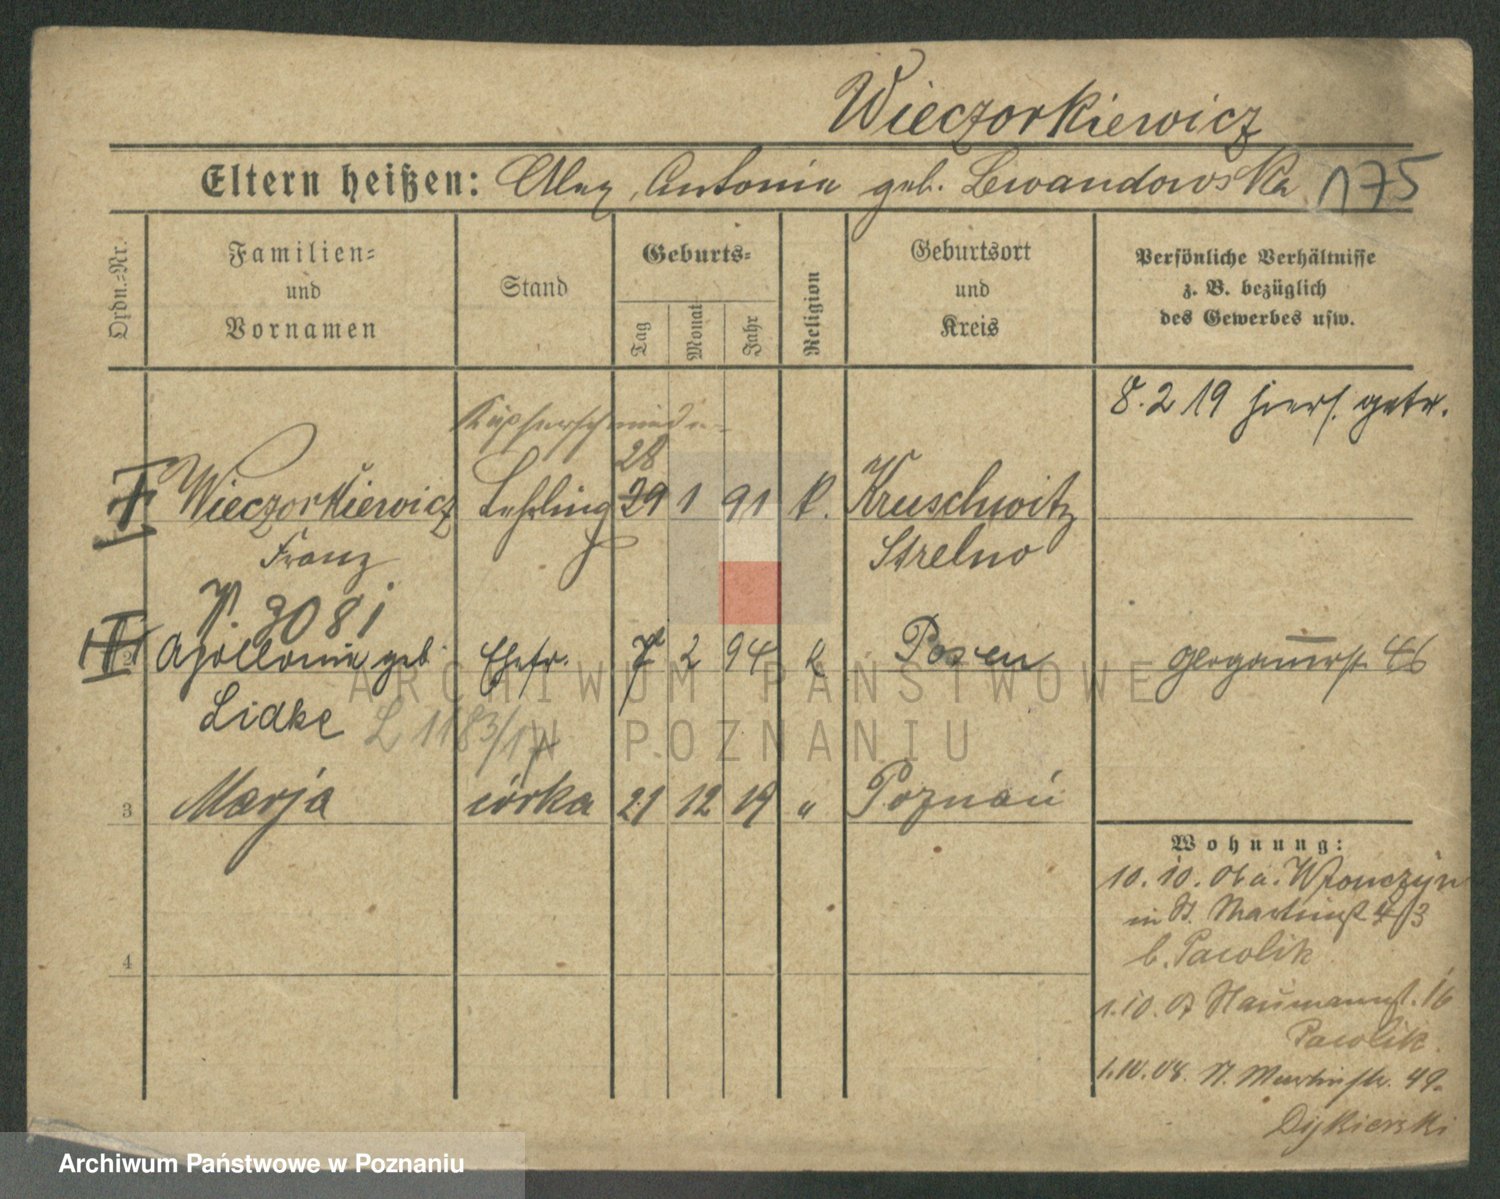 Wieczorkiewicz
Eltern heißen: Alex, Antonie geb. Lewandowska 175
Ordn.-Nr.
Familien-
und
Vornamen
Stand
Geburts-
Tag
Monat
Jahr
Religion
Geburtsort
und
Kreis
Persönliche Verhältnisse
z. B. bezüglich
des Gewerbes usw.
8. 2 19 hiers. getr.
Kupferschmiede-
28
Wieczorkiewicz Lehrling 29 1 91 k. Kruschwitz
Franz Strelno
P. 3081
2 Apollonia geb. Ehefr. 7 2 94 k Posen Glogauerstr 46
Lidke L 1183/17
3 Marja córka 21 12 19 " Poznań
Wohnung:
10. 10. 06 a. Wronczyn
in St. Martinst 4/3
b. Pacolik
4
1. 10. 07 Naumannst. 16
Pacolik.
1. 10. 08. St. Martinstr. 49.
Dykierski
ARCHIWUM PAŃSTWOWE
W POZNANIU
Archiwum Państwowe w Poznaniu